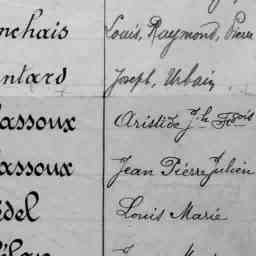 nchais Louis, Raymond, Pierre
ntard Joseph, Urbain
assoux Aristide Jh Fçois
assoux Jean Pierre Julien
edel Louis Marie